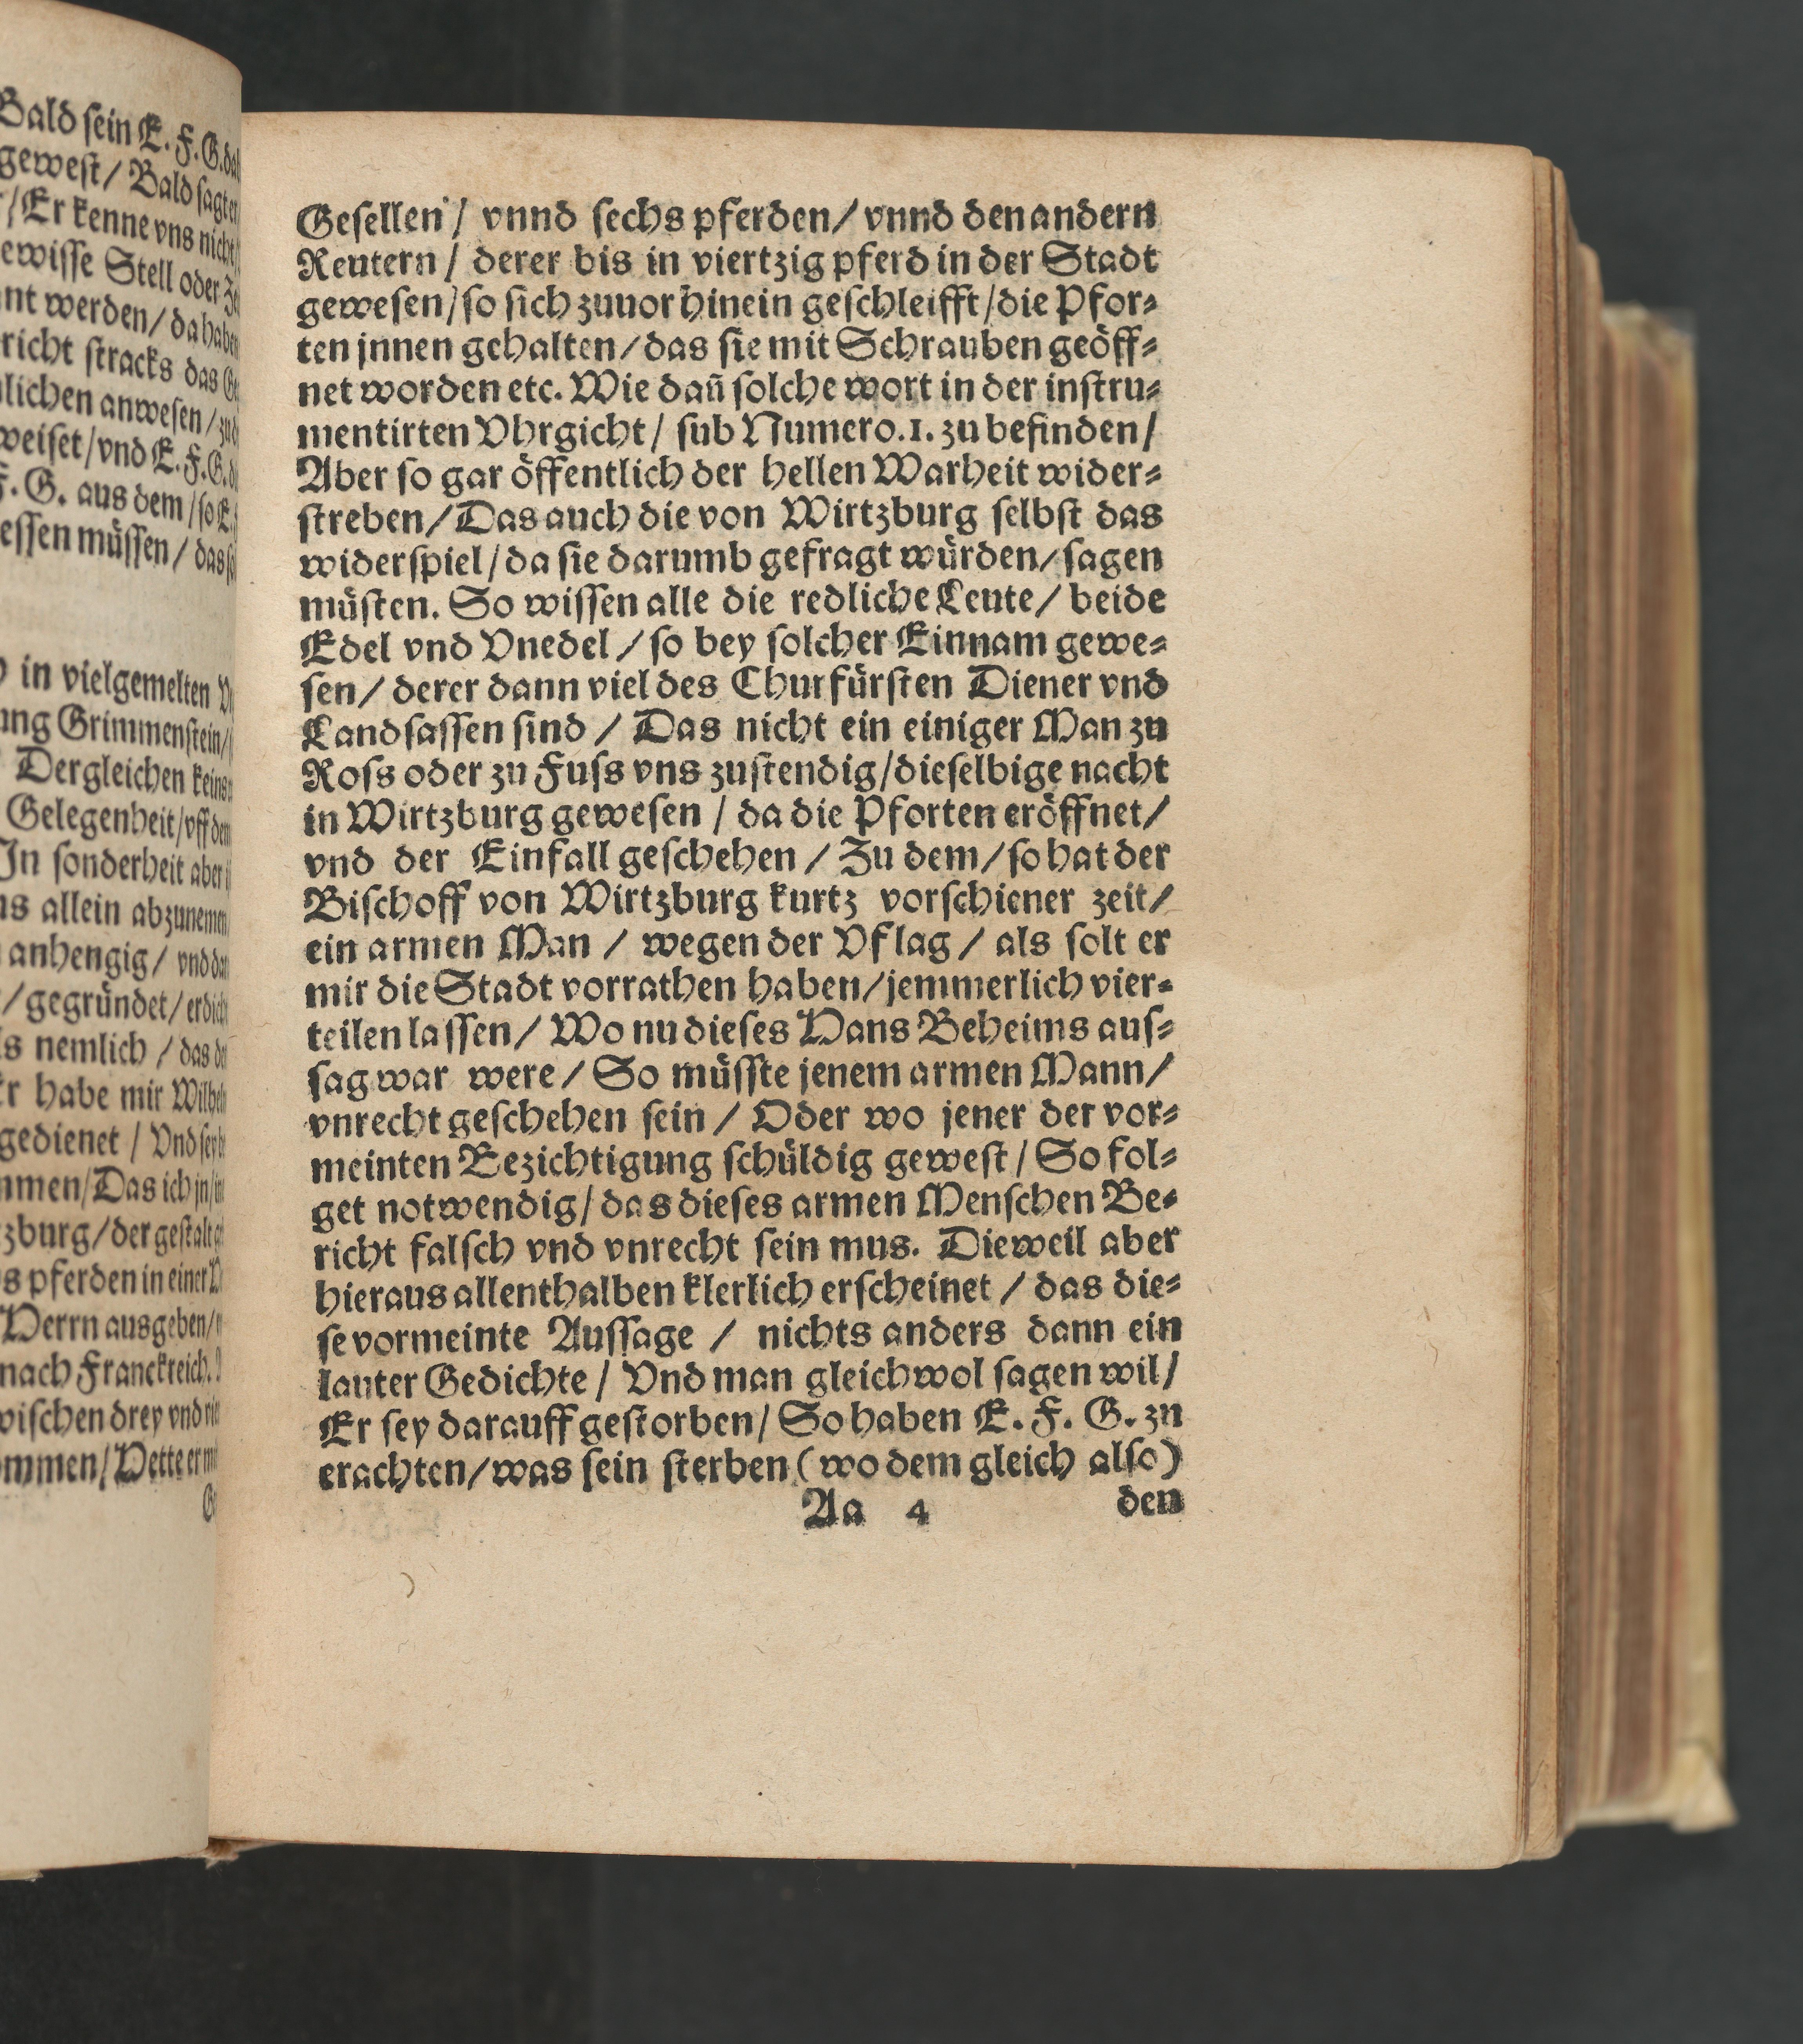 Bald ſein E. F. G.
geweſt / Bald ſagt er
/ Er kenne vns nicht
ewiſſe Stell oder
nt werden / da haben
richt ſtracks das
lichen anweſen /
weiſet / vnd E. F. G.
F. G. aus dem / ſo E.
eſſen müſſen /
in vielgemelten
ung Grimmenſtein /
Dergleichen
Gelegenheit / vff dem
In ſonderheit aber
ns allein abzunemen
anhengig / vnd
/ gegründet /
ls nemlich / das
Er habe mir
gedienet / Vnd
mmen / Das ich jn /
zburg / der geſtalt
s pferden in einer
Herrn ausgeben /
nach Franckreich.
wiſchen drey vnd
ommen / Hette er
Geſellen / vnnd ſechs pferden / vnnd den andern
Reutern / derer bis in viertzig pferd in der Stadt
geweſen / ſo ſich zuuor hinein geſchleifft / die Pfor⸗
ten jnnen gehalten / das ſie mit Schrauben geöff⸗
net worden etc. Wie dañ ſolche wort in der inſtru⸗
mentirten Vhrgicht / ſub Numero. 1. zu befinden /
Aber ſo gar öffentlich der hellen Warheit wider⸗
ſtreben / Das auch die von Wirtzburg ſelbſt das
widerſpiel / da ſie darumb gefragt würden / ſagen
müſten. So wiſſen alle die redliche Leute / beide
Edel vnd Vnedel / ſo bey ſolcher Einnam gewe⸗
ſen / derer dann viel des Churfürſten Diener vnd
Landſaſſen ſind / Das nicht ein einiger Man zu
Roſs oder zu Fuſs vns zuſtendig / dieſelbige nacht
in Wirtzburg geweſen / da die Pforten eröffnet /
vnd der Einfall geſchehen / Zu dem / ſo hat der
Biſchoff von Wirtzburg kurtz vorſchiener zeit /
ein armen Man / wegen der Vflag / als ſolt er
mir die Stadt vorrathen haben / jemmerlich vier⸗
teilen laſſen / Wo nu dieſes Hans Beheims auſ⸗
ſag war were / So müſſte jenem armen Mann /
vnrecht geſchehen ſein / Oder wo jener der vor⸗
meinten Bezichtigung ſchüldig geweſt / So fol⸗
get notwendig / das dieſes armen Menſchen Be⸗
richt falſch vnd vnrecht ſein mus. Dieweil aber
hieraus allenthalben klerlich erſcheinet / das die⸗
ſe vormeinte Auſſage / nichts anders dann ein
lauter Gedichte / Vnd man gleichwol ſagen wil /
Er ſey darauff geſtorben / So haben E. F. G. zu
erachten / was ſein ſterben ( wo dem gleich alſo )
Aa 4 den